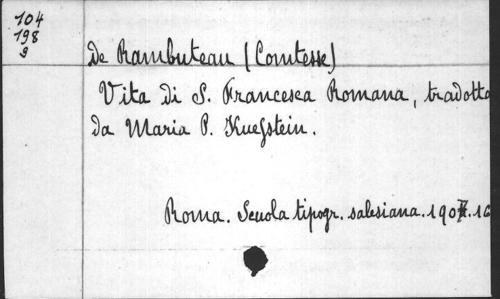 104
198
9
De Rambuteau (Comtesse)
Vita di S. Francesca Romana, tradotta
da Maria P. Kuefstein.
Roma. Scuola tipogr. salesiana. 16